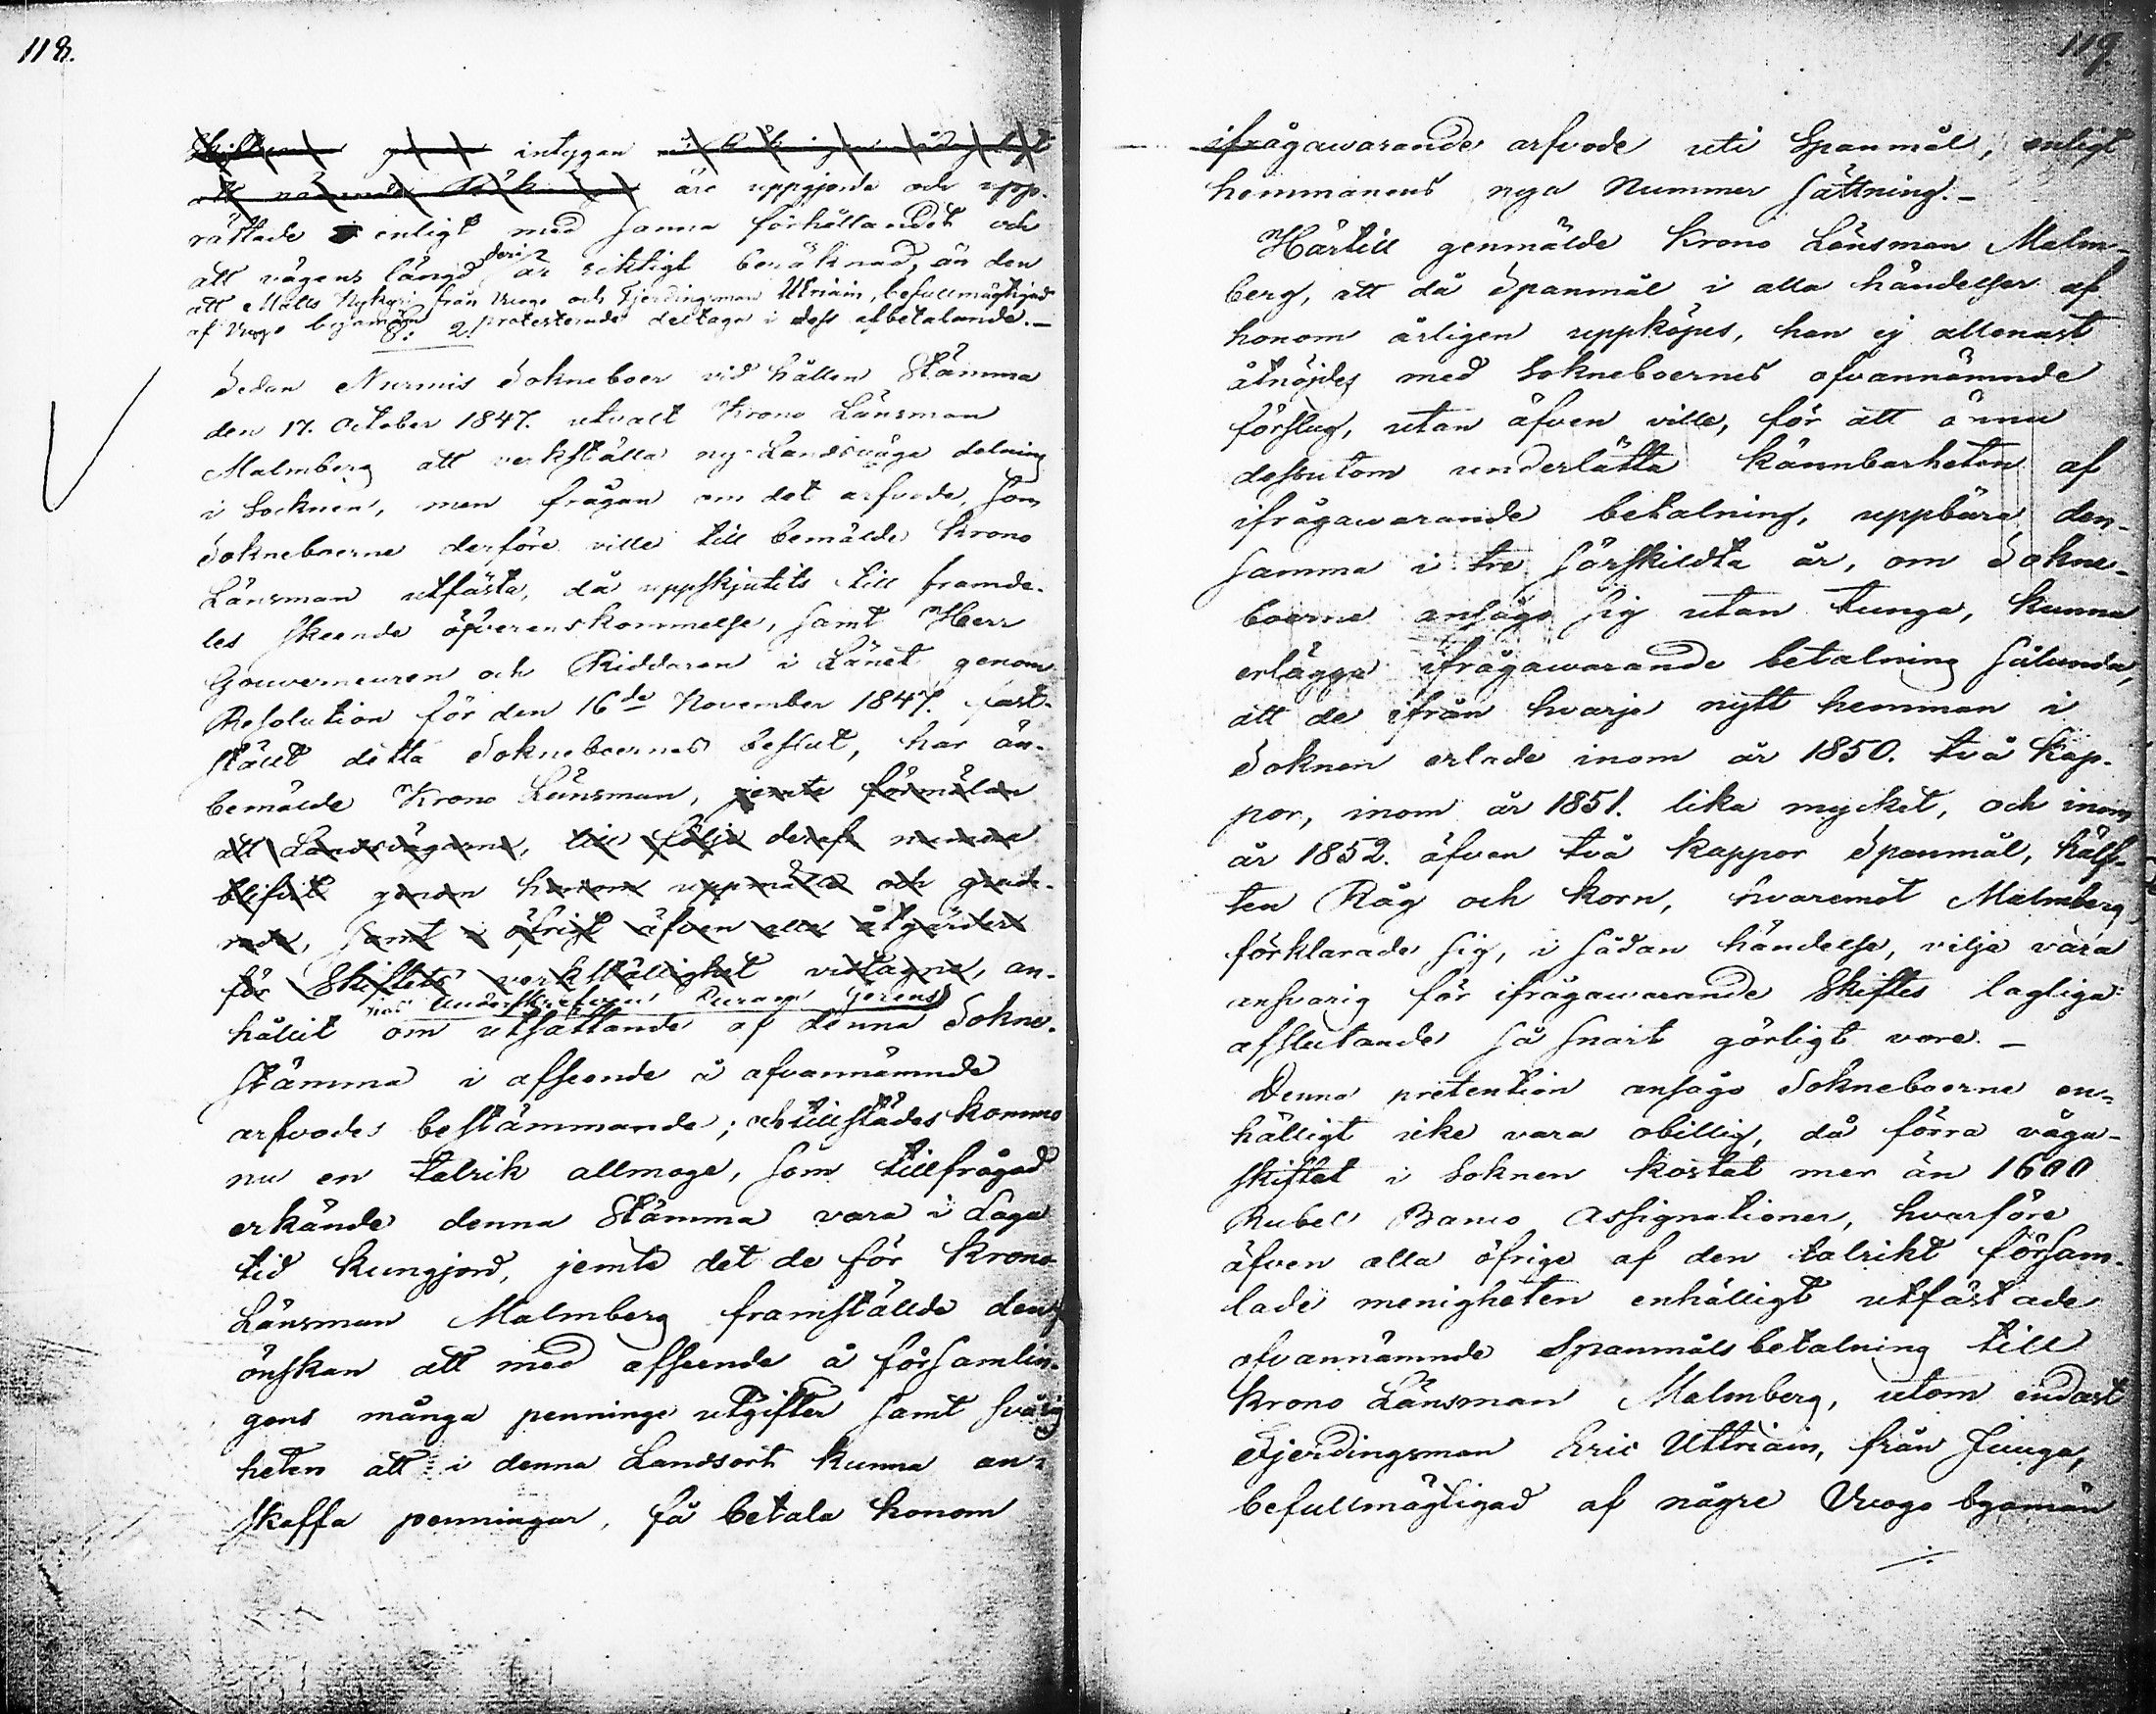 118.
intygan
äro uppgjorde och upp-
rättade enligt med sanna förhållandet och
att vägens längd deri är riktigt beräknad, än den
att Matts Nykyri från Uroge och Fjerdingsman Utriain, befullmägtigad
af Uroge byamän protesterade deltaga i dess afbetalande. —
§: 2.
Sedan Nurmis Sokneboer vid hållen Stämma
den 17. October 1847. utvalt Krono Länsman
Malmberg att verkställa ny Landsvägs delning
i Socknen, men frågan om det arfvode, som
Sokneboerne derföre ville till bemälde Krono
Länsman utfästa, då uppskjutits till framde-
les skeende öfverenskommelse, samt Herr
Gouverneuren och Riddaren i Länet genom
Resolution för den 16de November 1847. fast-
stält detta Sokneboernes beslut, har än-
bemälde Krono Länsman, jemte förmälan
att Landsvägarne, till följe deraf numera
blifvit genom honom uppmätte och grade-
rade, samt i öfrigt äfven alla åtgärder
för Skiftets verkställighet vidtagne, an-
hos Underskrefven
hållit om utsättande af denna Sokne-
stämma i afseende å ofvannämnde
arfvodes bestämmande; och tillstädes kommo
nu en talrik allmoge, som tillfrågad
erkände denna Stämma vara i Laga
tid kungjord, jemte det de för Krono
Länsman Malmberg framställde den
önskan att med afseende å församlin-
gens många penninge utgifter samt svårig
heten att i denna Landsort kunna an-
skaffa penningar, få betala honom
119.
ifrågawarande arfvode uti Spanmål, enligt
hemmanens nya Nummer sättning. —
Härtill genmälde Krono Länsman Malm-
berg, att då Spanmål i alla händelser af
honom årligen uppköpes, han ej allenast
åtnöjdes med Sokneboernes ofvannämnde
förslag, utan äfven ville, för att ännu
dessutom underlätta kännbarheten af
ifrågawarande betalning, uppbära den-
samma i tre särskildta år, om Sokne-
boerne ansågo sig utan tunga, kunna
erlägga ifrågawarande betalning sålunda,
att de ifrån hvarje nytt hemman i
Soknen erlade inom år 1850. två Kap-
por, inom år 1851. lika mycket, och inom
år 1852. äfven två kappor Spanmål, hälf-
ten Råg och Korn, hvaremot Malmberg
förklarade sig, i sådan händelse, vilja vara
ansvarig för ifrågawarande Skiftes lagliga
afslutande så snart görligt vore. —
Denna pretention ansågo Sokneboerne en-
hälligt icke vara obillig, då förra väga-
skiftet i Soknen kostat mer än 1600
Rubel Banco Assignationer, hvarföre
äfven alla öfrige af den talrikt försam-
lade menigheten enhälligt utfästade
ofvannämnde Spanmåls betalning till
Krono Länsman Malmberg, utom endast
Fjerdingsman Eric Uttriain, från Junga,
befullmägtigad af några Uroge byamän